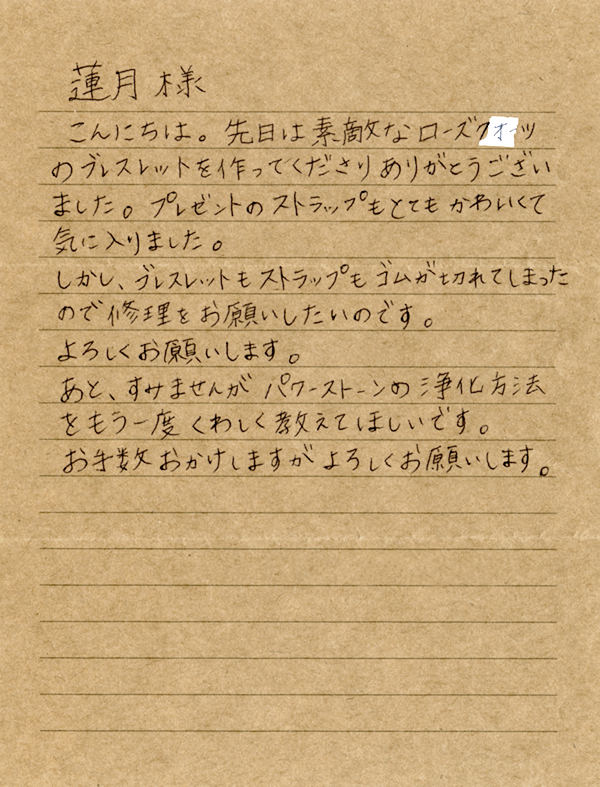 蓮月 様
こんにちは。先日は素敵なローズクオーツ
のブレスレットを作ってくださりありがとうござい
ました。プレゼントのストラップもとてもかわいくて
気に入りました。
しかし、ブレスレットもストラップもゴムが切れてしまった
ので修理をお願いしたいのです。
よろしくお願いします。
あと、すみませんがパワーストーンの浄化方法
をもう一度くわしく教えてほしいです。
お手数おかけしますがよろしくお願いします。